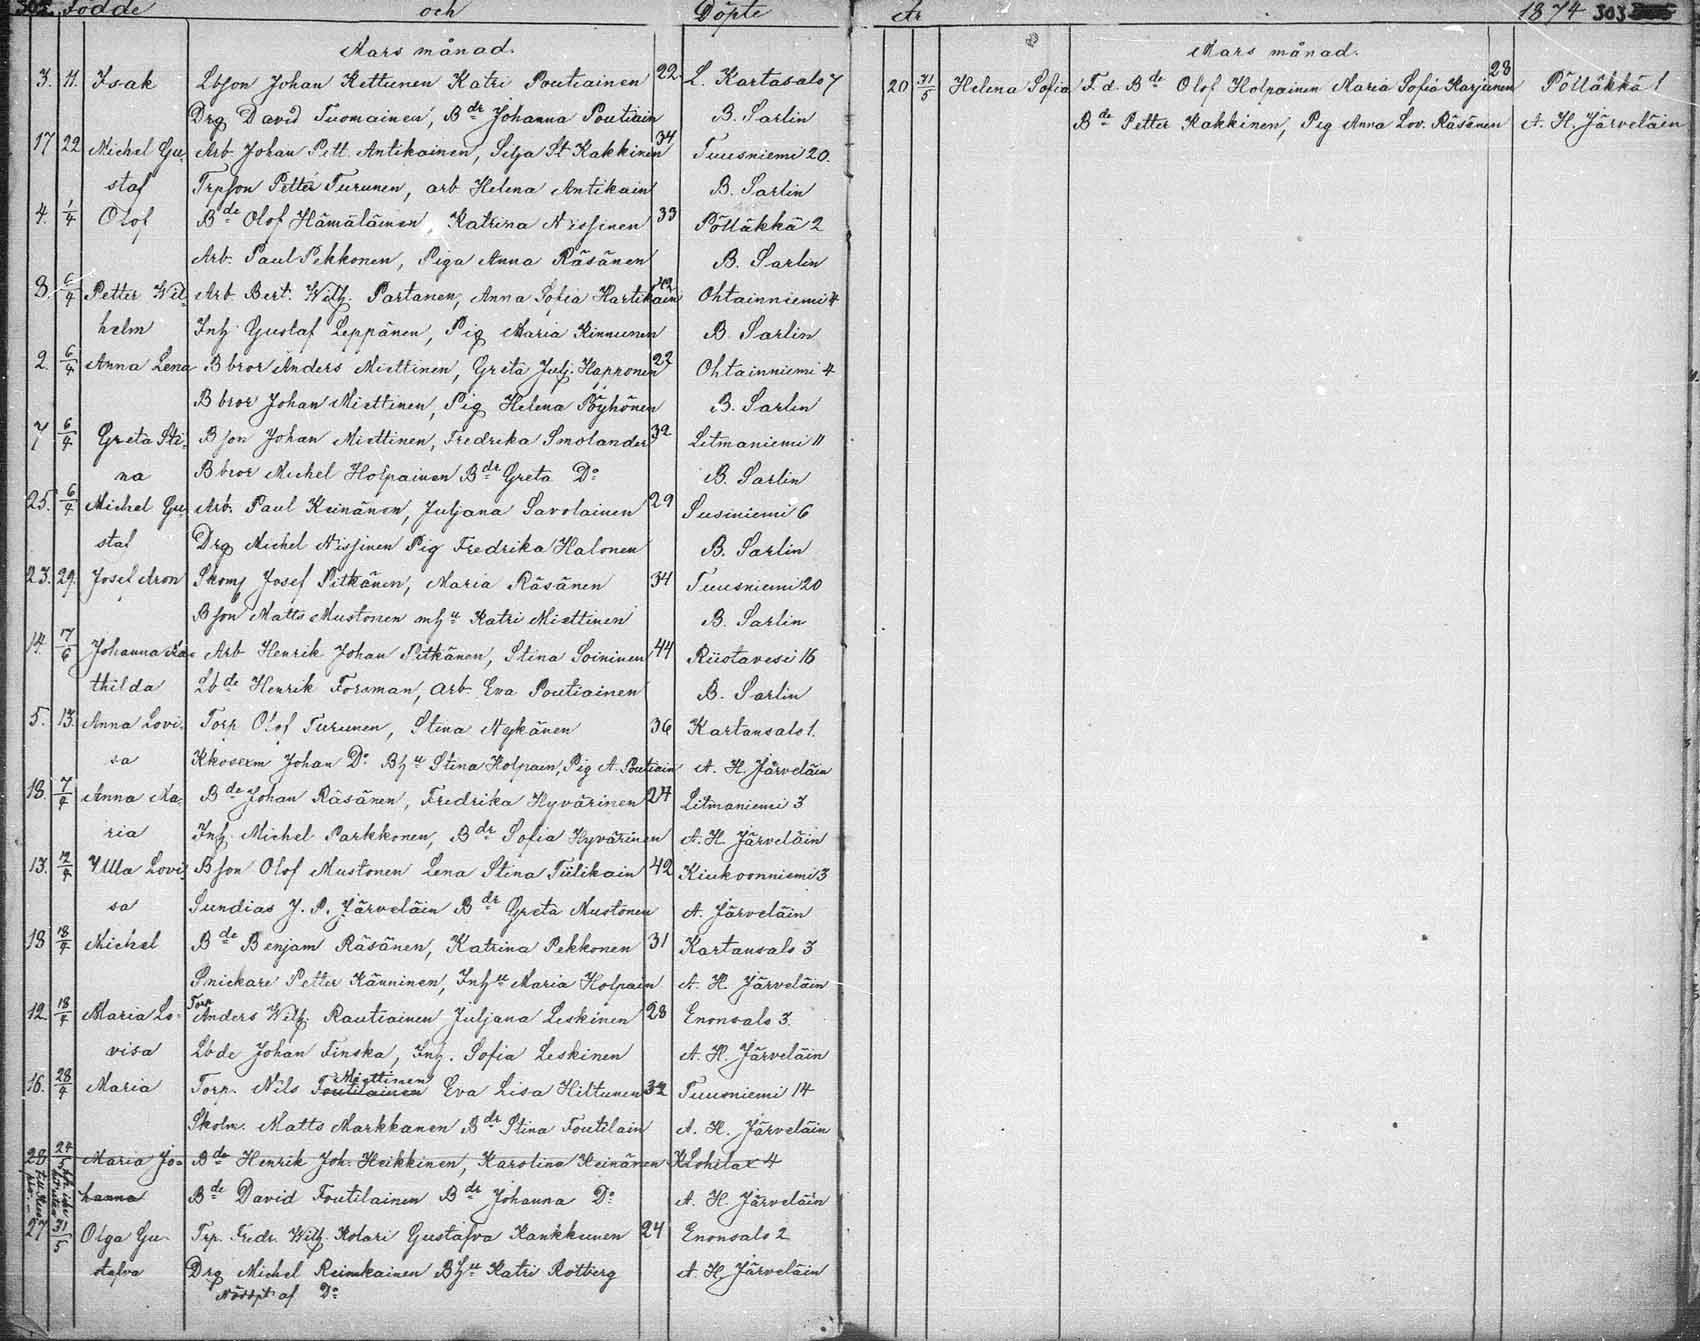 302. Födde och Döpte
Mars månad.
3. 11. Isak Lbson Johan Kettunen Katri Poutiainen 22 L. Kartasalo 7
Drg David Tuomainen, Bdr Johanna Poutiain B. Sarlin
17 22 Michel Gu- Arb. Johan Pett. Antikainen, Silja St Kakkinen 34 Tuusniemi 20.
staf Trpson Petter Turunen, arb Helena Antikain B. Sarlin
4. 1/4 Olof Bde Olof Hämäläinen, Katrina Nissinen 33 Pölläkkä 2
Arb. Paul Pekkonen, Piga Anna Räsänen B. Sarlin
8 6/4 Petter Wil- Arb. Bert. Wilh. Partanen, Anna Sofia Hartikain Ohtainniemi 4
helm Inh Gustaf Leppänen, Pig Maria Kinnunen B. Sarlin
2. 6/4 Anna Lena Bbror Anders Miettinen, Greta Julj. Happonen 22 Ohtainniemi 4
Bbror Johan Miettinen, Pig Helena Pöyhönen B. Sarlin
7 6/4 Greta Sti- Bson Johan Miettinen, Fredrika Smolander 32 Litmaniemi 11
na Bbror Michel Holpainen Bdr Greta Do B. Sarlin
25. 6/4 Michel Gu- Arb. Paul Keinänen, Juljana Savolainen 29 Susiniemi 6
staf Drg Michel Nissinen Pig Fredrika Halonen B. Sarlin
23. 29. Josef Aron Skom Josef Pitkänen, Maria Räsänen 34 Tuusniemi 20
Bson Matts Mustonen mhu Katri Miettinen B. Sarlin
14. 7/6 Johanna Ma- Arb Henrik Johan Pitkänen, Stina Soininen 44 Riistavesi 16
thilda Lbde Henrik Forsman, Arb. Eva Poutiainen B. Sarlin
5. 13. Anna Lovi- Torp Olof Turunen, Stina Nykänen 36 Kartansalo 1.
sa Johan Do Bhu Stina Holpain, Pig A. Poutiain A. H. Järveläin
18. 7/4 Anna Ma- Bde Johan Räsänen, Fredrika Hyvärinen 27 Litmaniemi 3
ria Inh. Michel Parkkonen, Bdr Sofia Hyvärinen A. H. Järveläin
13. Ulla Lovi- Bson Olof Mustonen Lena Stina Tiilikain 42 Kiukoonniemi 3
sa Sundias J. P. Järveläin Bdr Greta Mustonen A. Järveläin
18 18/4 Michel Bde Benjam Räsänen, Katrina Pekkonen 31 Kartansalo 3
Snickare Petter Känninen, Inhu Maria Holpain A. H. Järveläin
12. 18/4 Maria Lo- Torp Anders Wilh. Rautiainen Juljana Leskinen 28 Enonsalo 3.
visa Lbde Johan Finska, Inh. Sofia Leskinen A. H. Järveläin
Miettinen
16. 28/4 Maria Torp. Nils Toutilainen Eva Lisa Hiltunen 32 Tuusniemi 14
Skolm. Matts Markkanen Bdr Stina Toutilain A. H. Järveläin
28 24/5 Maria Jo- Bde Henrik Joh. Heikkinen, Karolina Heinänen Lohilax 4
hanna Bde David Toutilainen Bdr Johanna Do A. H. Järveläin
27 31/5 Olga Gu- Trp. Fredr. Wilh. Kolari Gustafva Kankkunen 24 Enonsalo 2
stafva Drg Michel Reinikainen Bhu Katri Rotberg A. H. Järveläin
Nödöpt af Do
År 1874 303
Mars månad.
20 31/5 Helena Sofia F. d. Bde Olof Holpainen Maria Sofia Karjunen 28 Pölläkkä 1
Bde Petter Kakkinen, Pig Anna Lov. Räsänen A. H. Järveläin